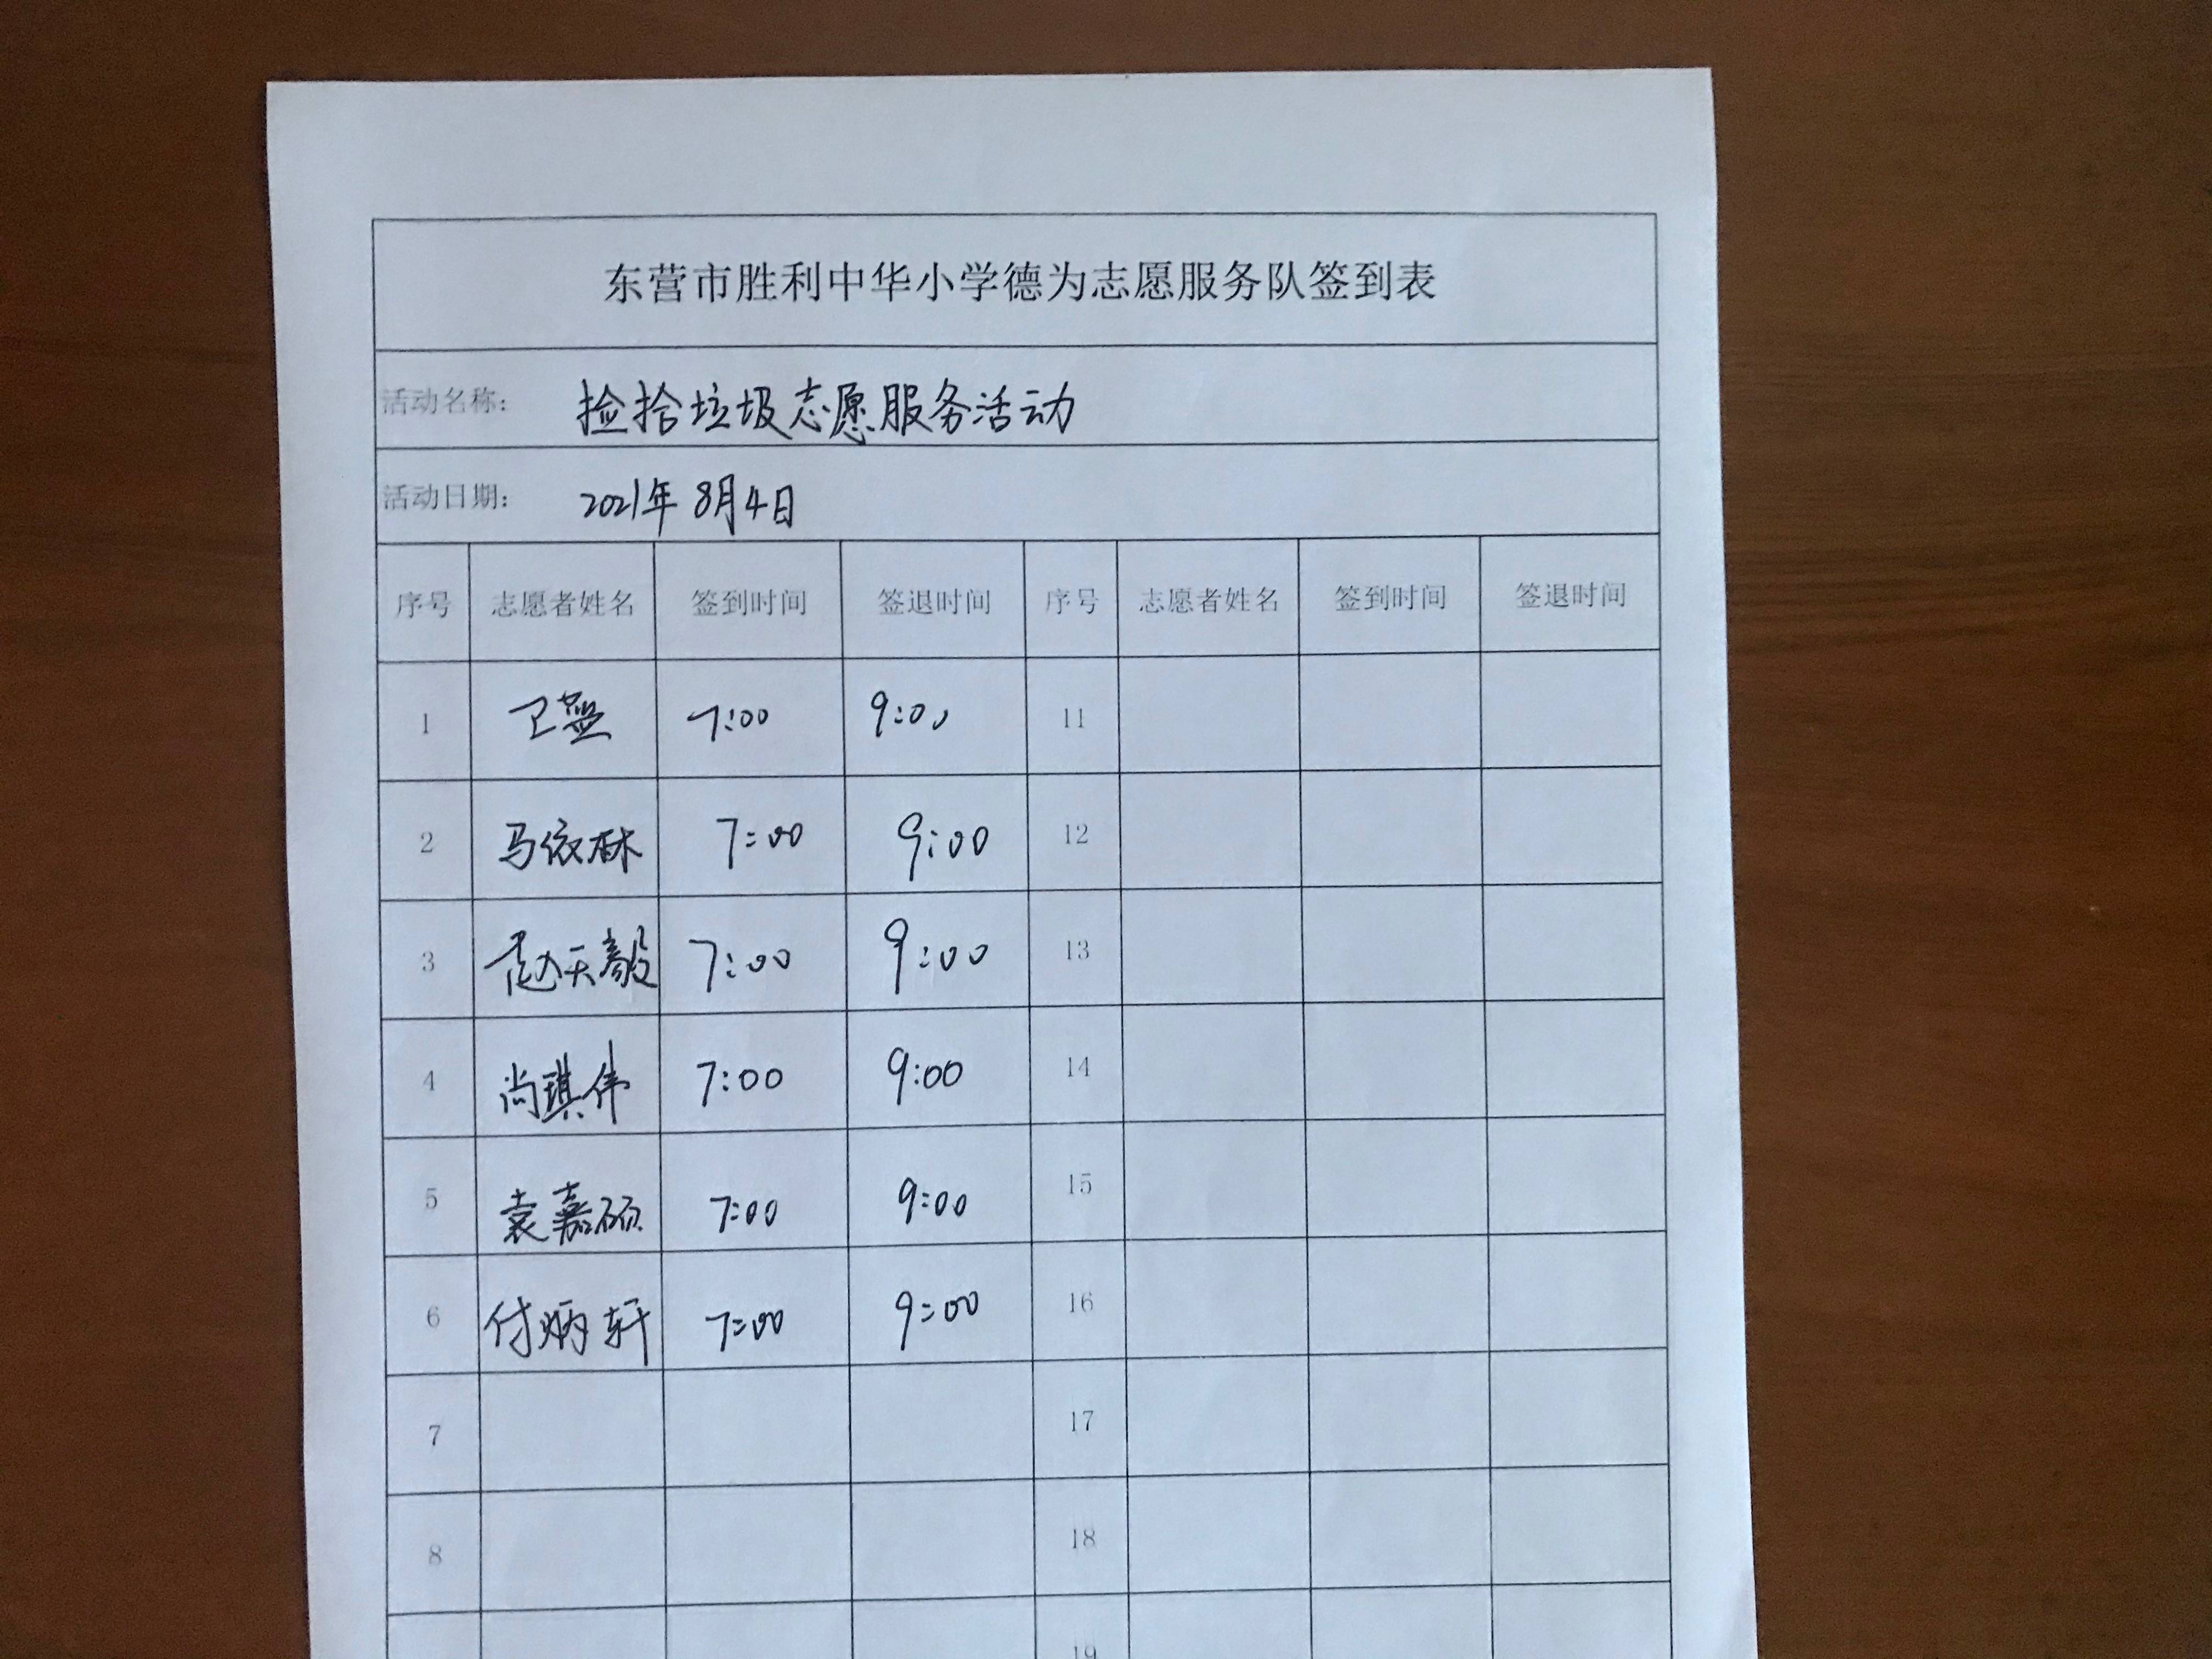 东营市胜利中华小学德为志愿服务队签到表
活动名称： 捡拾垃圾志愿服务活动
活动日期： 2021年8月4日
序号 志愿者姓名 签到时间 签退时间 序号 志愿者姓名 签到时间 签退时间
1 卫 7:00 9:00 11
2 马依林 7:00 9:00 12
3 赵天毅 7:00 9:00 13
4 尚琪伟 7:00 9:00 14
5 袁嘉硕 7:00 9:00 15
6 付炳轩 7:00 9:00 16
7 17
8 18
19